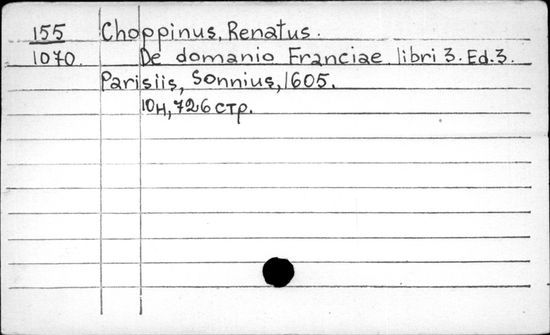 155 Choppinus, Renatus.
1070. De domanio Franciae libri 3. Ed. 3.
Parisiis, Sonnius, 1605.
10н, 726 стр.